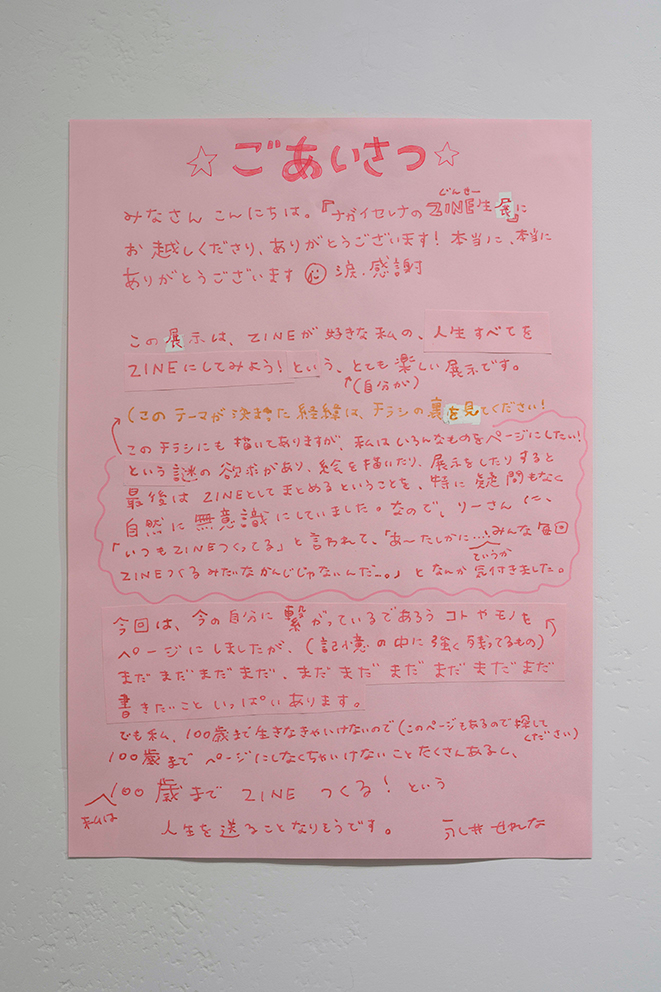 ☆ ごあいさつ ☆
みなさん こんにちは。『ナガイセレナの ZINE生展』に
じんせー
お 越しくださり、ありがとうございます! 本当に、本当に
ありがとうございます 涙・感謝
この 展示は、ZINEが 好きな 私の、人生 すべてを
ZINEにしてみよう! という、とても 楽しい 展示です。
↑(自分が)
(この テーマが 決まった 経緯は、チラシの 裏を見てください!
このチラシにも 描いてありますが、私は いろんなものをページにしたい!
という 謎の 欲求があり、絵を描いたり、展示をしたりすると
最後は ZINEとしてまとめるということを、特に 疑問もなく
自然に 無意識にしていました。なので、りーさんに、
「いつもZINEつくってる」と 言われて、「あ〜たしかに....みんな 毎回
ていうか
ZINEつくる みたいな かんじじゃないんだ〜。」と なんか 気付きました。
今回は、今の自分に 繋がっているであろう コトやモノを
ページにしましたが、(記憶の中に強く残ってるもの)
まだ まだまだ まだ、まだ まだ まだ まだ まだ まだ
書きたいこと いっぱい あります。
でも 私、100歳まで生きなきゃいけないので(このページもあるので 探して
ください)
100歳まで ページにしなくちゃいけないこと たくさんあるし、
100 歳まで ZINE つくる! という
私は
人生を 送ることになりそうです。